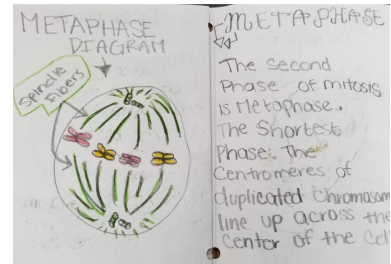 METAPHASE
DIAGRAM
Spindle
Fibers
METAPHASE
The Second
Phase of mitosis
is Metaphase.
The Shortest
Phase. The
Centromeres of
duplicated chromosom
line up across the
center of the cell